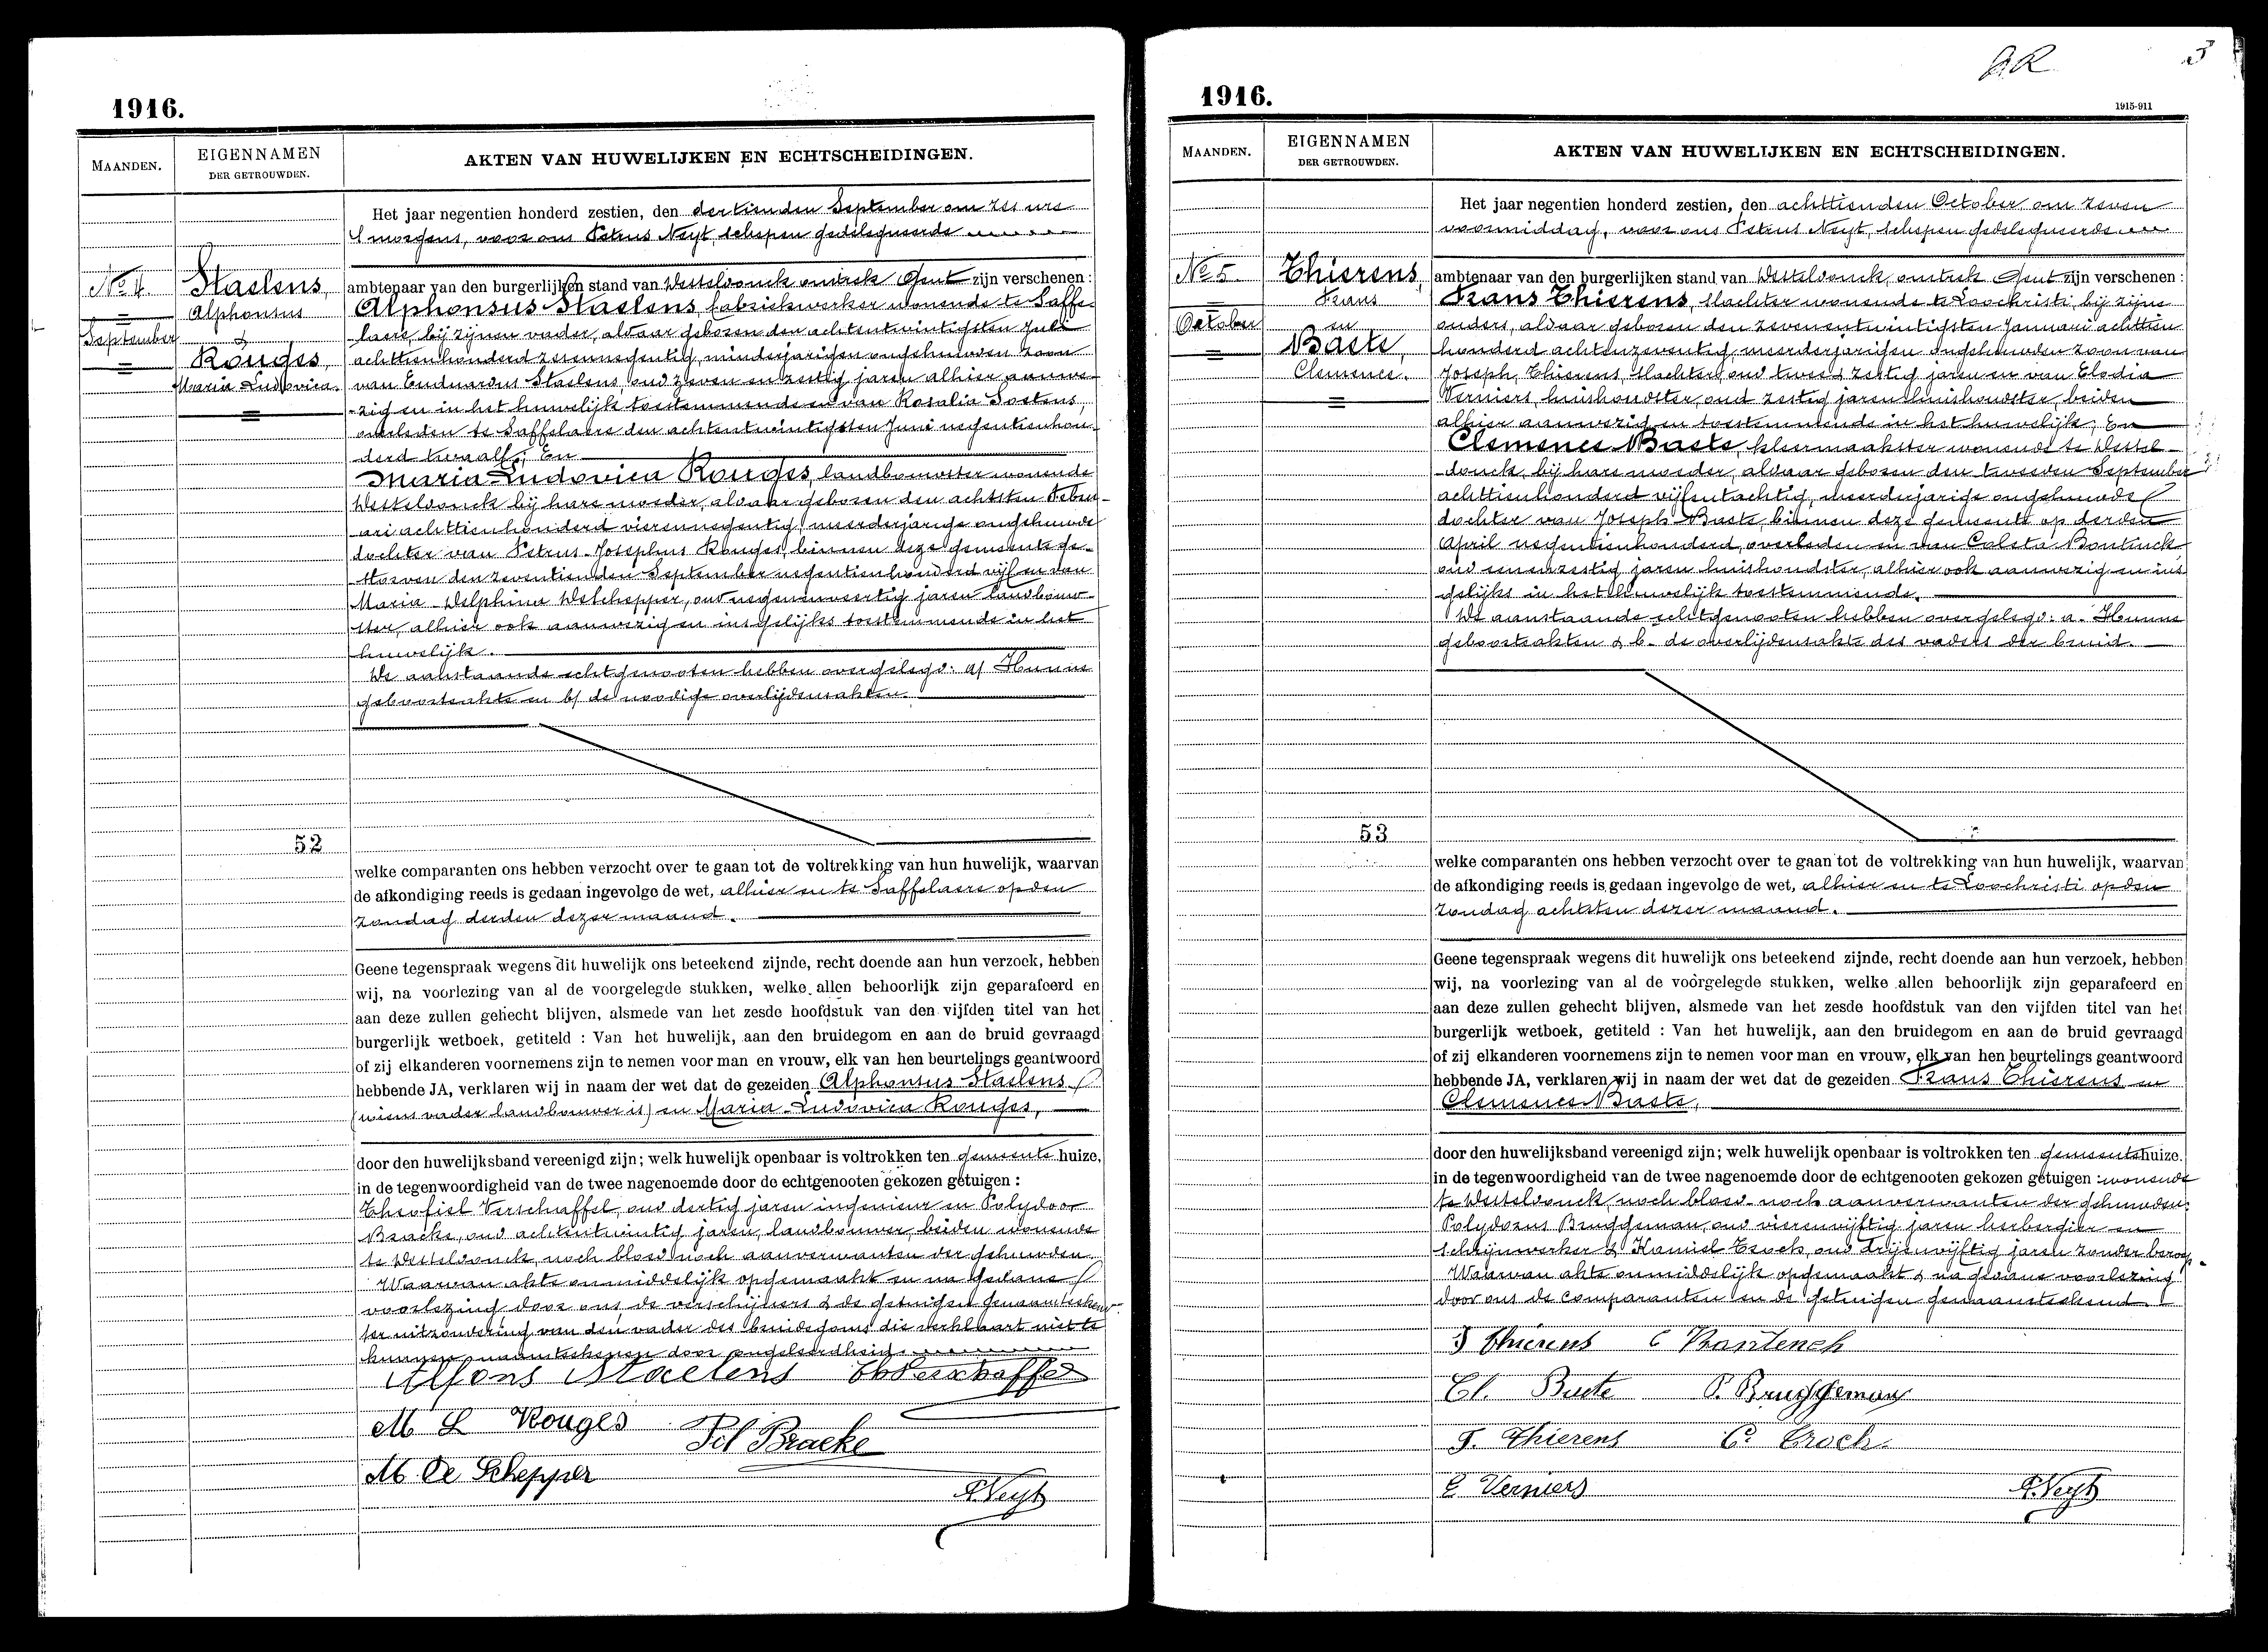 1916.
MAANDEN.
EIGENNAMEN
DER GETROUWDEN.
AKTEN VAN HUWELIJKEN EN ECHTSCHEIDINGEN.
Het jaar negentien honderd zestien, den dertienden September om zes ure
's morgens, voor ons Petrus Neyt, schepen gedelegueerde
No 4.
September
Staelens,
Alphonsus
&
Rouges,
Maria Ludovica.
ambtenaar van den burgerlijken stand van Desteldonck omtrek Gent zijn verschenen :
Alphonsus Staelens, fabriekwerker wonende te Saffe-
laere, bij zijnen vader, aldaar geboren den achtentwintigsten Juli
achttienhonderd zesennegentig, minderjarigen ongehuwden zoon
van Eduardus Staelens, oud zeven en zestig jaren alhier aanwe-
-zig en in het huwelijk toestemmende en van Rosalia Soetens,
overleden te Saffelaere den achtentwintigsten Juni negentienhon-
derd twaalf; En
Maria-Ludovica Rouges, landbouwster wonende
Desteldonck bij hare moeder, aldaar geboren den achtsten Febru-
ari achttienhonderd vierennegentig, meerderjarige ongehuwde
dochter van Petrus-Josephus Rouges, binnen deze gemeente ge-
storven den zeventienden September negentienhonderd vijf en van
Maria-Delphina Deschepper, oud negenenveertig jaren landbouw-
ster, alhier ook aanwezig en insgelijks toestemmende in het
huwelijk.
De aanstaande echtgenooten hebben overgelegd: a/ Hunne
geboorteakte en b/ de noodige overlijdensakten.
52
welke comparanten ons hebben verzocht over te gaan tot de voltrekking van hun huwelijk, waarvan
de afkondiging reeds is gedaan ingevolge de wet, alhier en te Saffelaere op den
zondag derden dezer maand.
Geene tegenspraak wegens dit huwelijk ons beteekend zijnde, recht doende aan hun verzoek, hebben
wij, na voorlezing van al de voorgelegde stukken, welke allen behoorlijk zijn geparafeerd en
aan deze zullen gehecht blijven, alsmede van het zesde hoofdstuk van den vijfden titel van het
burgerlijk wetboek, getiteld : Van het huwelijk, aan den bruidegom en aan de bruid gevraagd
of zij elkanderen voornemens zijn te nemen voor man en vrouw, elk van hen beurtelings geantwoord
hebbende JA, verklaren wij in naam der wet dat de gezeiden Alphonsus Staelens
(wiens vader landbouwer is) en Maria-Ludovica Rouges,
door den huwelijksband vereenigd zijn; welk huwelijk openbaar is voltrokken ten gemeente huize,
in de tegenwoordigheid van de twee nagenoemde door de echtgenooten gekozen getuigen :
Theofiel Verschaffel, oud dertig jaren ingenieur en Polydoor
Bracke, oud achtentwintig jaren, landbouwer, beiden wonende
te Desteldonck, noch bloed noch aanverwanten der gehuwden.
Waarvan akte onmiddelijk opgemaakt en na gedane
voorlezing door ons, de verschijners & de getuigen genaamteekend
ter uitzondering van den vader des bruidegoms die verklaart niet te
kunnen naamteekenen door ongeleerdheid.
Alfons Staelens Th Verschaffel
M L Rouges Pol Bracke
M. De Schepper
P. Neyt
A.R
3
1916.
1915-911
MAANDEN.
EIGENNAMEN
DER GETROUWDEN.
AKTEN VAN HUWELIJKEN EN ECHTSCHEIDINGEN.
Het jaar negentien honderd zestien, den achttienden October om zeven
voormiddag, voor ons Petrus Neyt, schepen gedelegueerde
No 5.
October
Thierens,
Frans
en
Baete,
Clemence.
ambtenaar van den burgerlijken stand van Desteldonck, omtrek Gent zijn verschenen :
Frans Thierens, slachter wonende te Loochristi, bij zijne
ouders, aldaar geboren den zevenentwintigsten Januari achttien
honderd achtenzeventig, meerderjarigen ongehuwden zoon van
Joseph Thierens, slachter, oud twee & zestig jaren en van Elodia
Verniers, huishoudster, oud zestig jaren huishoudster, beiden
alhier aanwezig en toestemmende in het huwelijk; En
Clemence Baete, kleermaakster wonende te Destel-
-donck, bij hare moeder, aldaar geboren den tweeden September
achttienhonderd vijfentachtig, meerderjarige ongehuwde
dochter van Joseph Baete, binnen deze gemeente op derden
April negentienhonderd, overleden en van Coleta Bontinck
oud eenenzestig jaren huishoudster, alhier ook aanwezig en ins
gelijks in het huwelijk toestemmende.
De aanstaande echtgenooten hebben overgelegd: a. Hunne
geboorteakten & b- de overlijdensakte des vaders der bruid.
53
welke comparanten ons hebben verzocht over te gaan tot de voltrekking van hun huwelijk, waarvan
de afkondiging reeds is gedaan ingevolge de wet, alhier en te Loochristi op den
zondag achtsten dezer maand.
Geene tegenspraak wegens dit huwelijk ons beteekend zijnde, recht doende aan hun verzoek, hebben
wij, na voorlezing van al de voorgelegde stukken, welke allen behoorlijk zijn geparafeerd en
aan deze zullen gehecht blijven, alsmede van het zesde hoofdstuk van den vijfden titel van het
burgerlijk wetboek, getiteld : Van het huwelijk, aan den bruidegom en aan de bruid gevraagd
of zij elkanderen voornemens zijn te nemen voor man en vrouw, elk van hen beurtelings geantwoord
hebbende JA, verklaren wij in naam der wet dat de gezeiden Frans Thierens en
Clemence Baete,
door den huwelijksband vereenigd zijn; welk huwelijk openbaar is voltrokken ten gemeentehuize.
in de tegenwoordigheid van de twee nagenoemde door de echtgenooten gekozen getuigen : wonende
te Desteldonck, noch bloed- noch aanverwanten der gehuwden:
Polydorus Bruggeman, oud vierenvijftig jaren herbergier en
schrijnwerker & Kamiel Croch, oud drijenvijftig jaren zonder beroep.
Waarvan akte onmiddelijk opgemaakt & na gedane voorlezing
door ons de comparanten en de getuigen genaamteekend.
J Thierens C Bontinck
Cl. Baete P. Bruggeman
F. Thierens C. Croch.
E Verniers P. Neyt